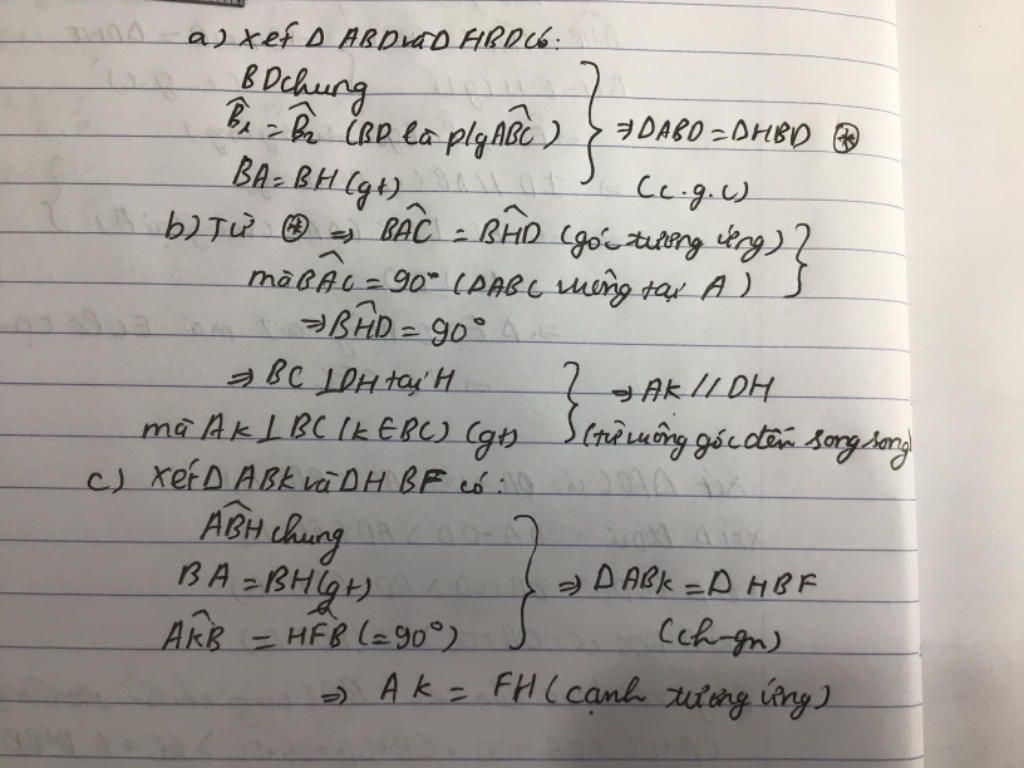 a) Xét Δ ABD và Δ HBD có:
BD chung
B̂₁ = B̂₂ (BD là p/g ABĈ) ⇒ ΔABD = ΔHBD ⊛
BA = BH (gt) (c.g.c)
b) Từ ⊛ ⇒ BÂC = BĤD (góc tương ứng)
mà BÂC = 90° (ΔABC vuông tại A)
⇒ BĤD = 90°
⇒ BC ⊥ DH tại H ⇒ AK // DH
mà AK ⊥ BC (K ∈ BC) (gt) (từ vuông góc đến song song)
c) Xét Δ ABK và Δ HBF có:
AB̂H chung
BA = BH (gt) ⇒ Δ ABK = Δ HBF
AK̂B = HF̂B (= 90°) (ch-gn)
⇒ AK = FH (cạnh tương ứng)